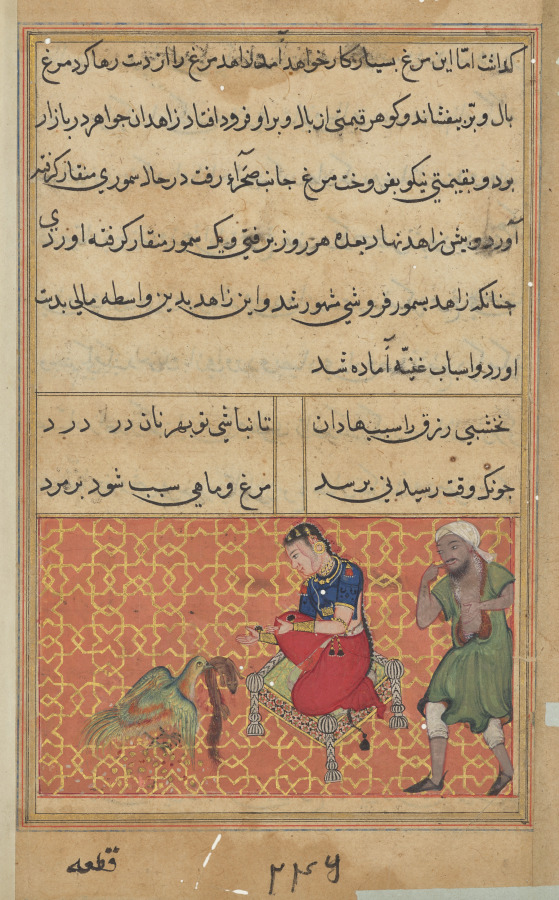 کذاشت امّا این مرغ بسیار کار خواهد آمد زاهد مرغ را از دست رها کرد مرغ
بال و پر بیفشاند و کوهر قیمتی از بال و بر او فرود افتاد زاهد ان جواهر در بازار
برد و بقیمتی نیکو بفروخت مرغ جانب صحراء رفت در حال سموری منقار کرفته
آورد و پیش زاهد نهاد بعده هر روز برفتی و یک سمور منقار کرفته اوردی
چنانکه زاهد بسمور فروشی مشهور شد و این زاهد بدین واسطه مالی بدست
اورد و اسباب غنیه آماده شد
نخشبی رزق را سببها دان تا نباشی تو بهر نان در درد
چونکه وقت رسیدنی برسد مرغ و ماهی سبب شود بر مرد
قطعه
۲۲۶